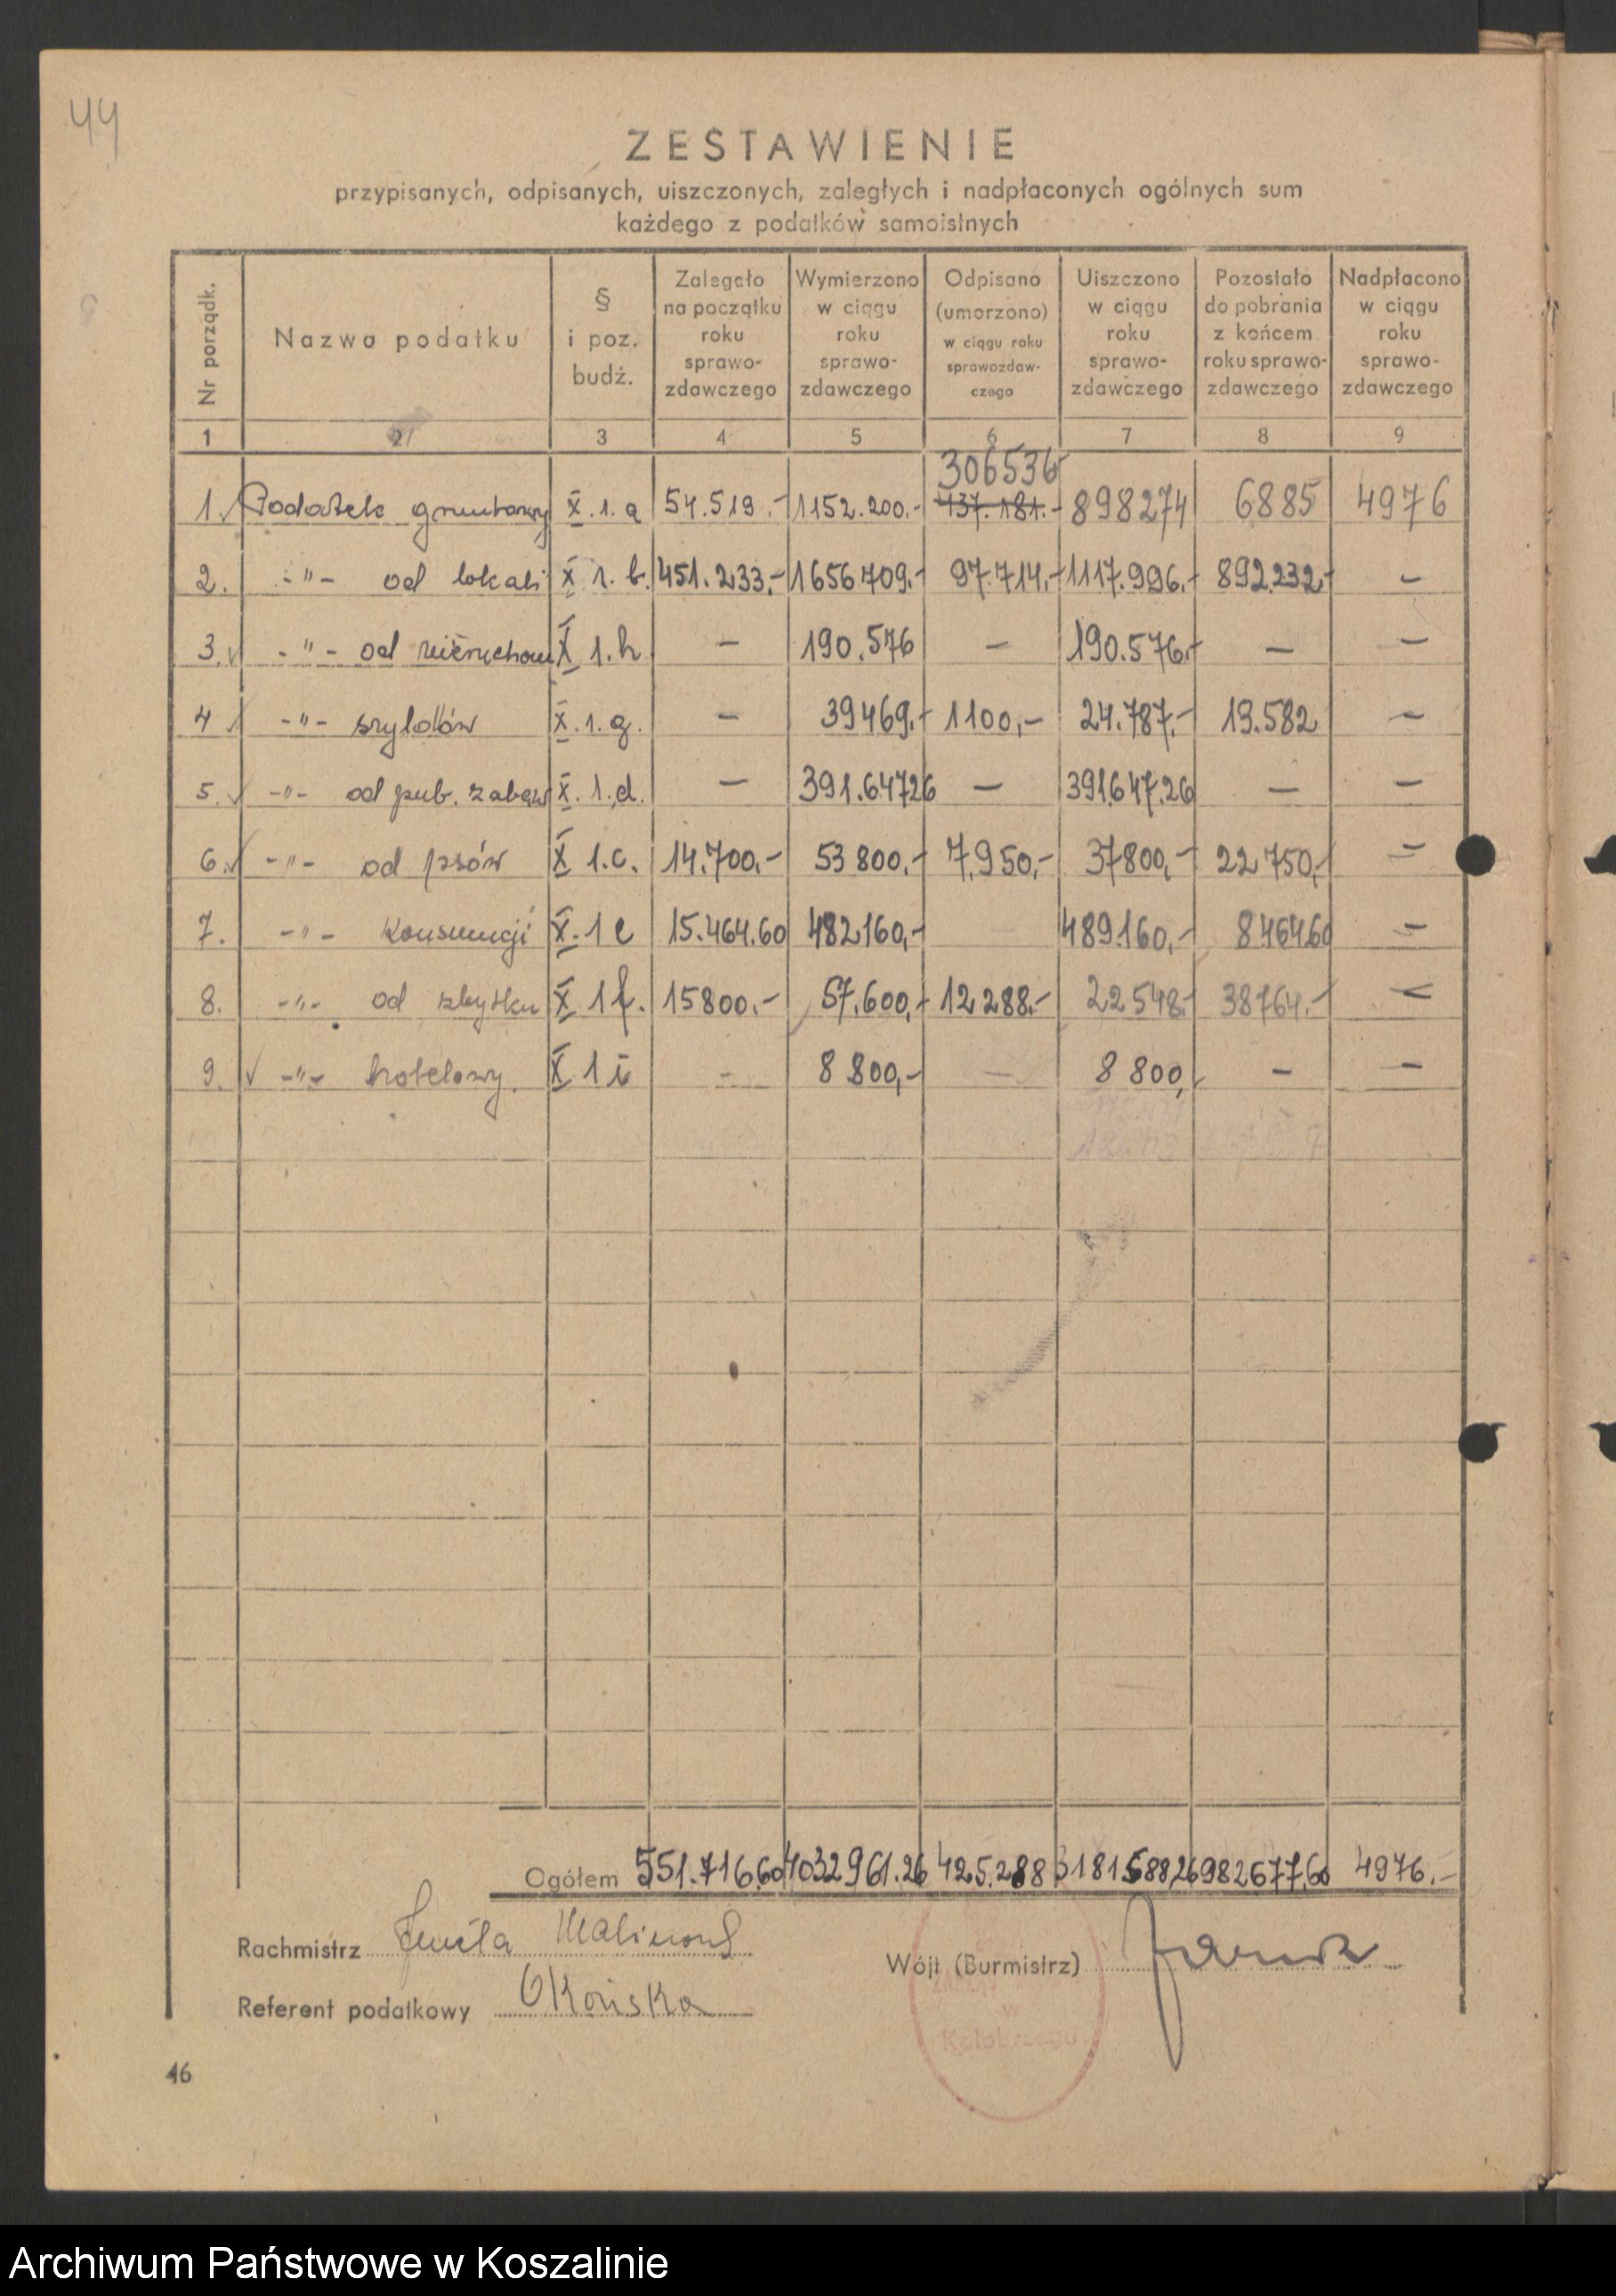 44
ZESTAWIENIE
przypisanych, odpisanych, uiszczonych, zaległych i nadpłaconych ogólnych sum
każdego z podatków samoistnych
Nr porządk. Nazwa podatku § i poz. budż. Zalegało na początku roku sprawozdawczego Wymierzono w ciągu roku sprawozdawczego Odpisano (umorzono) w ciągu roku sprawozdawczego Uiszczono w ciągu roku sprawozdawczego Pozostało do pobrania z końcem roku sprawozdawczego Nadpłacono w ciągu roku sprawozdawczego
1 2 3 4 5 6 7 8 9
306536
1. Podatek gruntowy X.1.a 54.519.- 1152.200.- 437.181.- 898274 6885 4976
2. -"- od lokali X 1.b. 451.233.- 1656709.- 97.714.- 1117.996.- 892.232.- -
3. -"- od X 1.h - 190.576 - 190.576.- - -
4 -"- szyldów X.1.g. - 39469.- 1100,- 24.787.- 13.582 -
5. -"- od pub. zabaw X.1.d. - 391.647 26 - 391.647.26 - -
6. -"- od psów X 1.c. 14.700.- 53 800.- 7.950,- 37800,- 22 750,- -
7. -"- Konsumcji X.1 e 15.464.60 482160,- 489.160,- 8464 60 -
8. -"- od zbytku X 1 f. 15800.- 57.600,- 12 288.- 22 548.- 38764.- -
9. -"- hotelowy. X 1 i - 8 800,- - 8 800, - -
Ogółem 551.716.60 4032961.26 425.288 3181588,26 982677,60 4976.-
Rachmistrz
Wójt (Burmistrz)
Referent podatkowy Okońska
w
Kołobrzegu
46
Archiwum Państwowe w Koszalinie